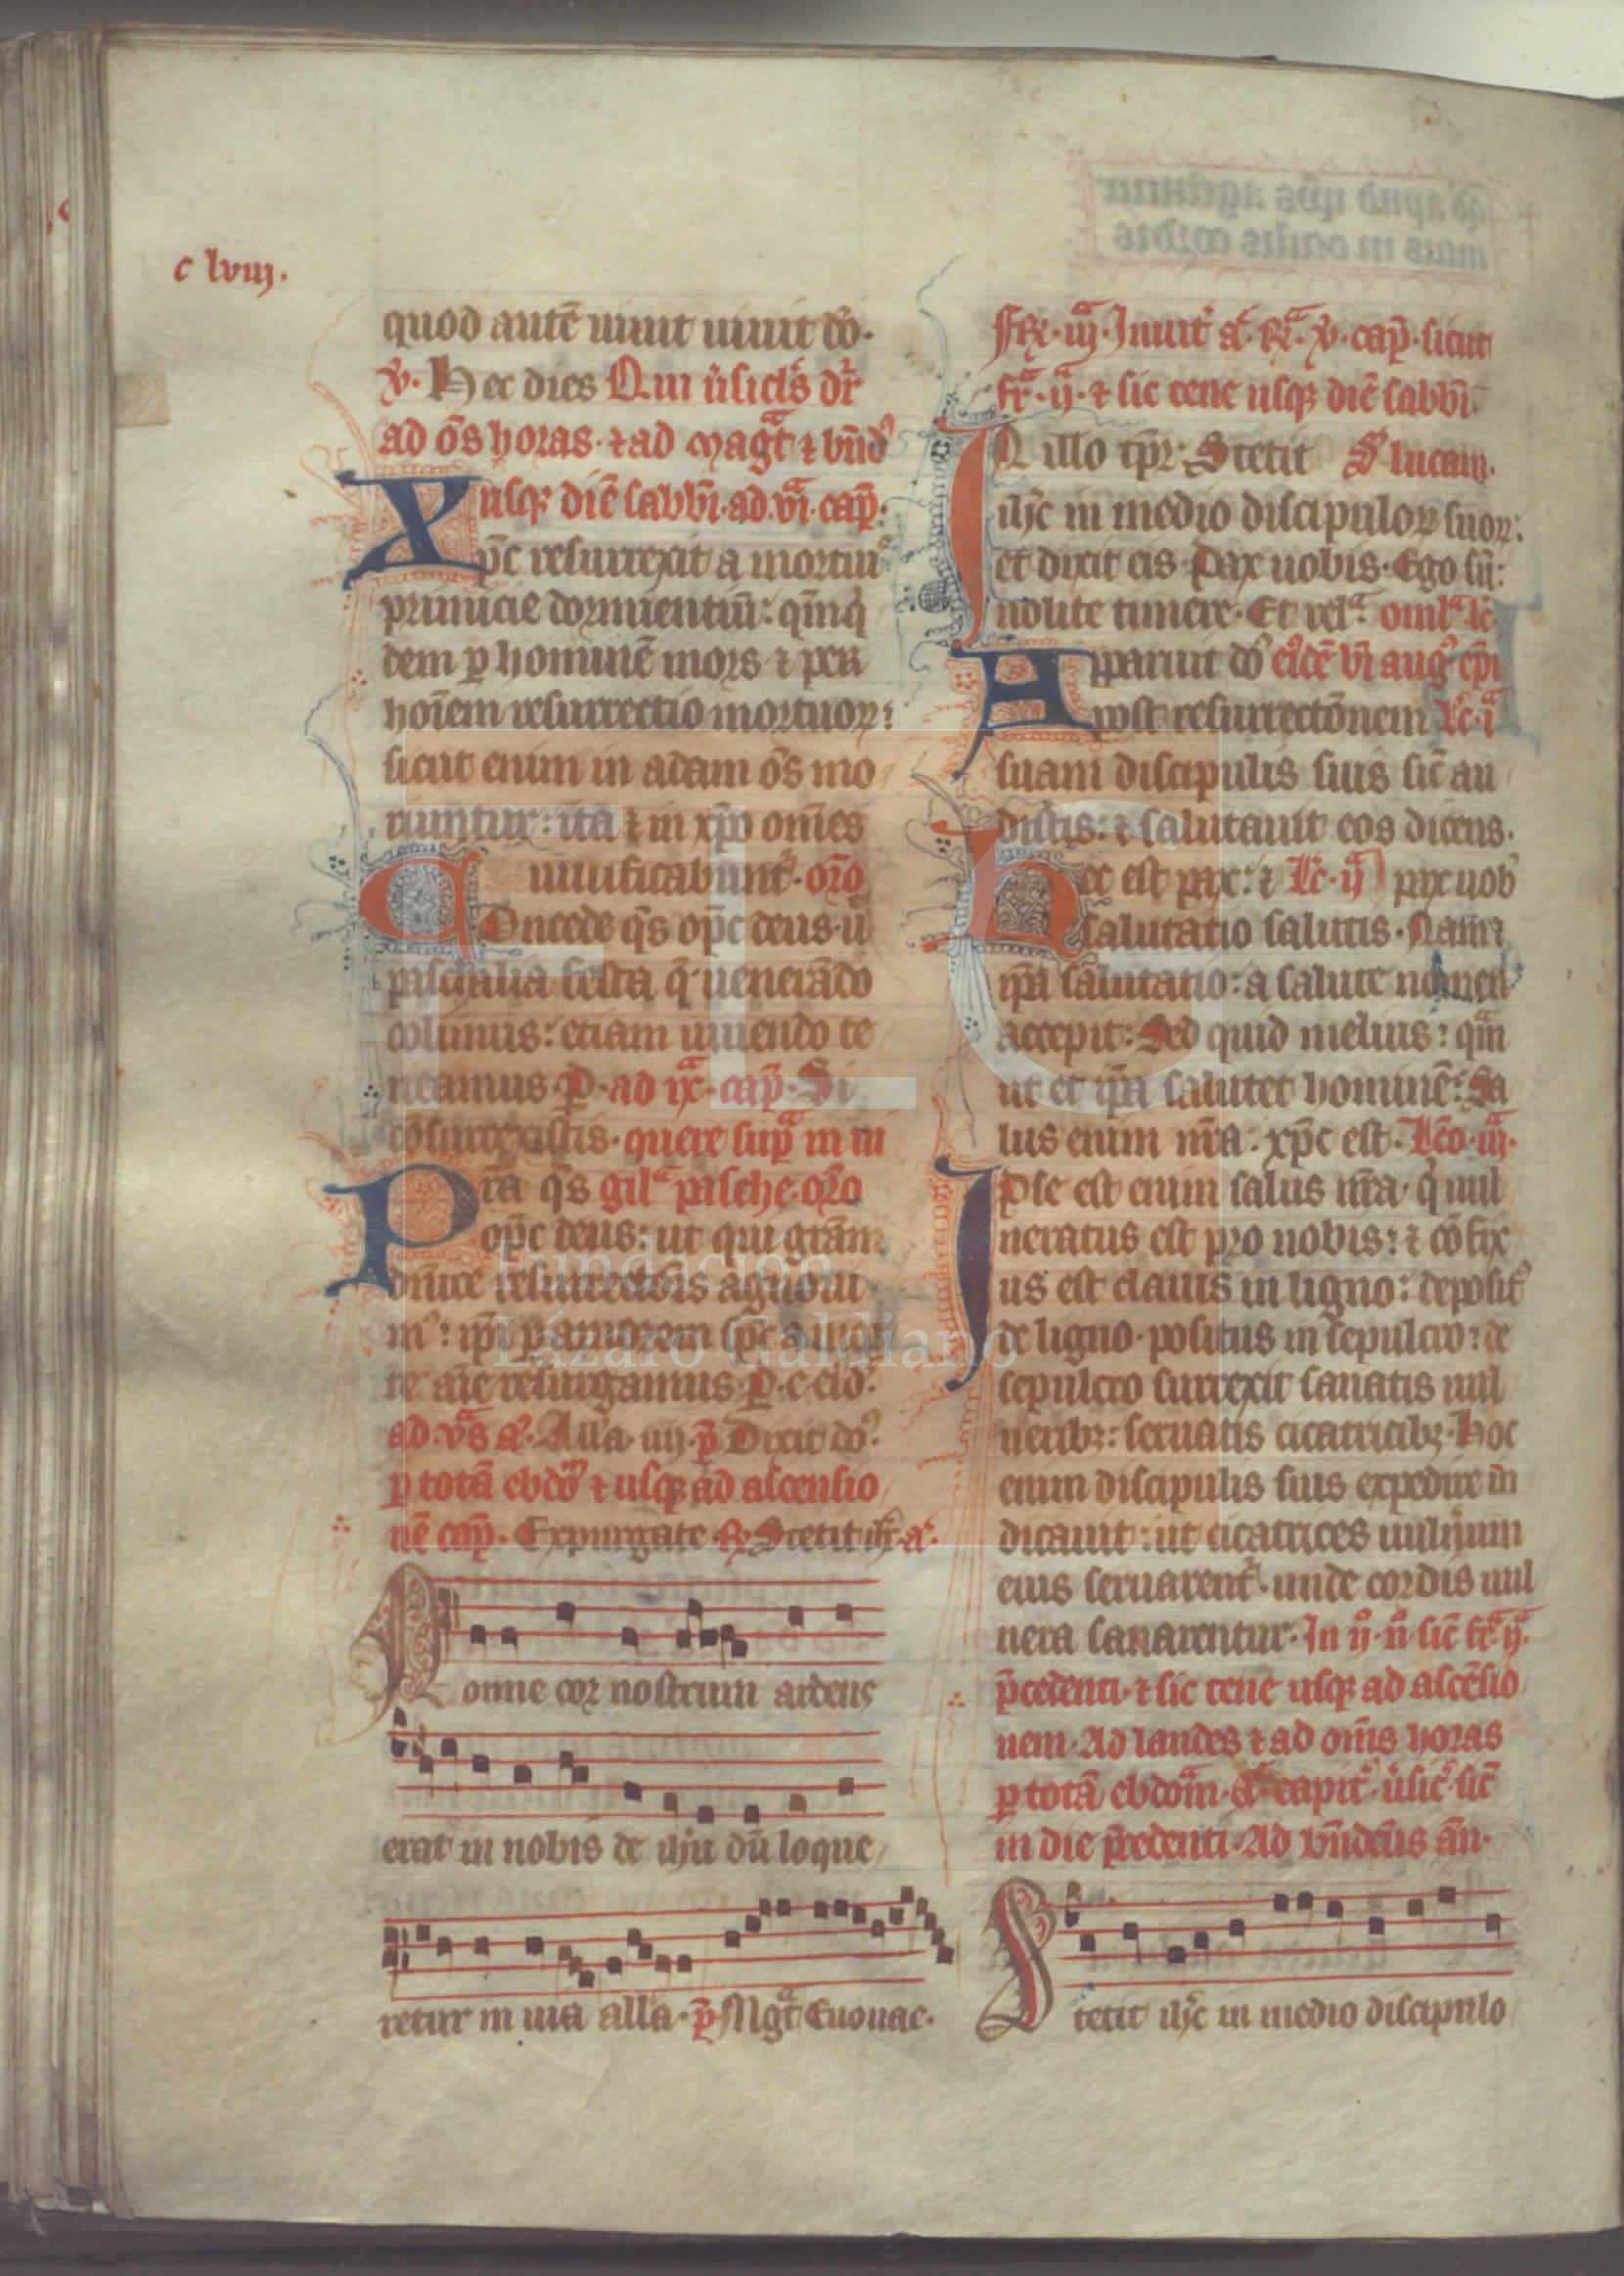 c lviij.
quod autē uiuit uiuit dō.
v̄. Hec dies Qui ůsicl's dr̄
ad ōs horas. ⁊ ad magt̄ ⁊ bn̄d'
usq; diē sabb̄i. ad. vī. cap̄.
Xp̄c resurrexit a mortuis
primicie dormientiū: qm̄q'
dem p hominē mors ⁊ per
hoīem resurrectio mortuoꝝ:
sicut enim in adam ōs mo
riuntur: ita ⁊ in xp̄o om̄es
uiuificabunt'. or̄o
Concede q̄s op̄c deus. ū
paschalia festa q̄ uenerādo
colimus: etiam uiuendo te
neamus. P. ad ix̄. cap̄. Si
cōsurrexistis. quere sup̄ in ui
gil' pasche. or̄o
Pr̄a q̄s
op̄c deus: ut qui grām
dn̄ice resurrectōis agnoui
m': ip̄i p amorem sp̄c a mor
te aīe resurgamus. P. c. eid'.
ad. vs̄ a'. All'a. iiij. p̄ Dixit dō.
p totā ebdō ⁊ usq; ad ascensio
nē cap̄. Expurgate. R̄ Stetit ih̄. a'.
Nonne cor nostrum ardens
erat in nobis de ih̄u dū loque
retur in uia alla. p̄ Mgt̄ Euouae.
Fr̄. iij. Inuit' a'. v̄. cap̄. sicut
fr̄. ij. ⁊ sic tene usq; diē sabb̄i.
IN illo tp̄r: Stetit S' lucam.
ih̄c in medio discipuloꝝ suoꝝ:
et dixit eis Pax uobis. Ego sū:
nolite timere. Et rel'. omil' lc̄
Apparuit dō eīdē b̄i aug' ep̄i
post resurrectōnem Lc̄. i
suam discipulis suis sic̄ au
distis: ⁊ salutauit eos dicens.
Hec est pax: ⁊ Lc̄. ij pax uob'
salutatio salutis. Nam ⁊
ip̄a salutatio: a salute nomen
accepit: Sed quid melius: qm̄
ut et ip̄a salutet hominē: Sa
lus enim nr̄a: xp̄c est. Lc̄o. iij.
Ipse est enim salus nr̄a. q' uul
neratus est pro nobis: ⁊ cōfix
us est clauis in ligno: deposit'
de ligno. positus in sepulcro: de
sepulcro surrexit sanatis uul
nerib;: seruatis cicatricib; Hoc
enim discipulis suis expedire iu
dicauit: ut cicatrices uulnerum
eius seruarent'. unde cordis uul
nera sanarentur. In ij. n̄. sic̄ fr̄. ij.
p̄cedenti. ⁊ sic tene usq; ad ascēsio
nem. Ad laudes ⁊ ad om̄s horas
p totā ebdom̄. a' capit'. ůsic'. sic̄
in die p̄cedenti. Ad bn̄dc̄us an̄.
Stetit ih̄c in medio discipulo
FLG
Fundación
Lázaro Galdiano